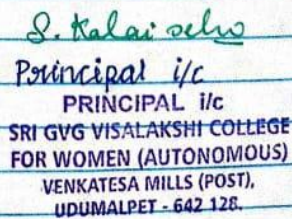 S. Kalai selvi
Principal i/c
PRINCIPAL i/c
SRI GVG VISALAKSHI COLLEGE
FOR WOMEN (AUTONOMOUS)
VENKATESA MILLS (POST),
UDUMALPET - 642 128.